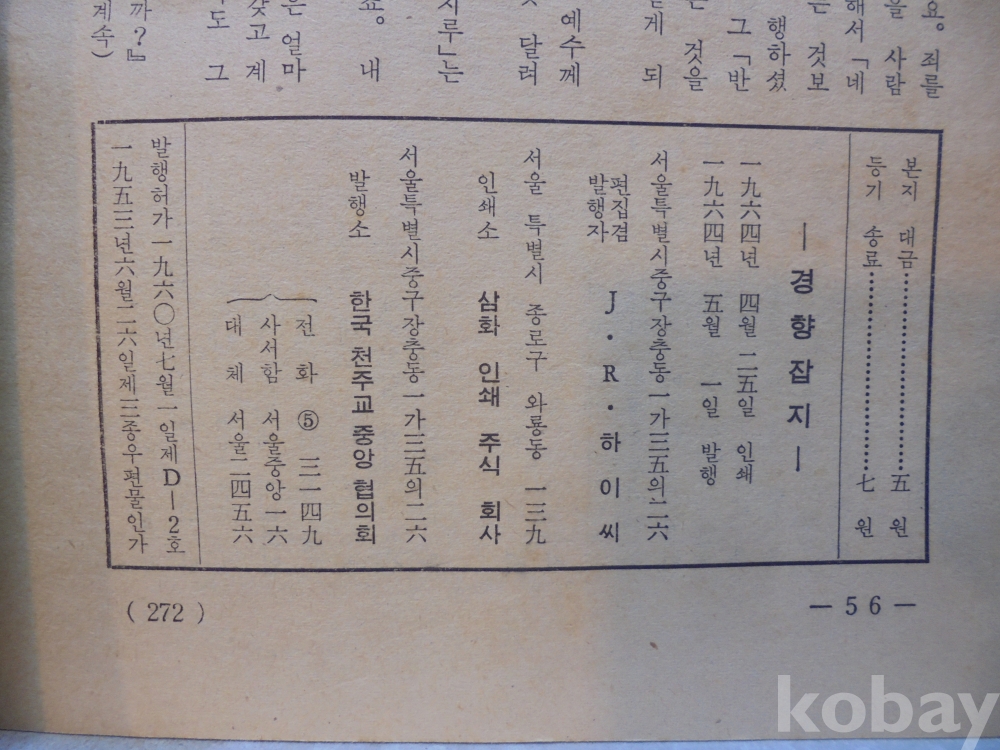 요。죄를
을 사람
해서「네
는 것보
행하셨
그「반
것을
게 되
예수께
달려
지루」는
죠。내
은 얼마
갖고 계
도 그
까?』
계속)
본지 대금………………五 원
등기 송료………………七 원
— 경향잡지 —
一九六四년 四월 二五일 인쇄
一九六四년 五월 一일 발행
서울특별시중구장충동一가三五의二六
편집겸
발행자 J·R·하이씨
서울 특별시 종로구 와룡동 一三九
인쇄소 삼화 인쇄 주식 회사
서울특별시중구장충동一가三五의二六
발행소 한국천주교중앙협의회
전화 ⑤ 三一四九
사서함 서울중앙一六
대체 서울二四五六
발행허가一九六○년七월一일제D—2호
一九五三년六월二六일제三종우편물인가
— 56 —
( 272 )
kobay